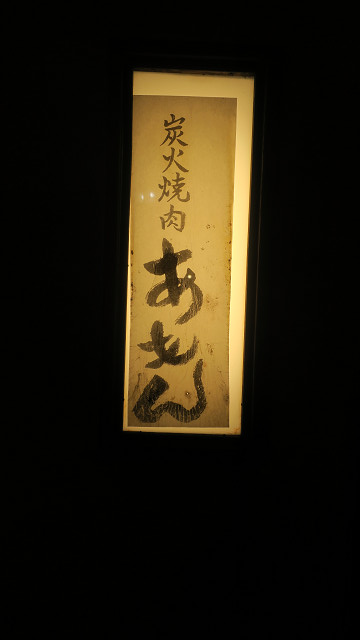 炭火焼肉
あもん